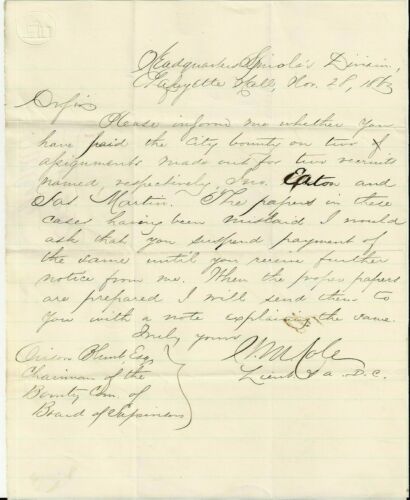 Headquarters Spinola's Division,
Lafayette Hall, Nov. 28, 1863
Please inform me whether you
have paid the City bounty on two
assignments made out for two recruits
named, respectively, Jno. Eaton and
Jas Martin. The papers in these
cases having been mislaid I would
ask that you suspend payment of
the same until you receive further
notice from me. When the proper papers
are prepared I will send them to
you with a note explaining the same.
Truly yours
Orison Blunt Esq.
Chairman of the
Bounty Com. of
Board of Supervisors
Cole
Lieut & a.D.C.